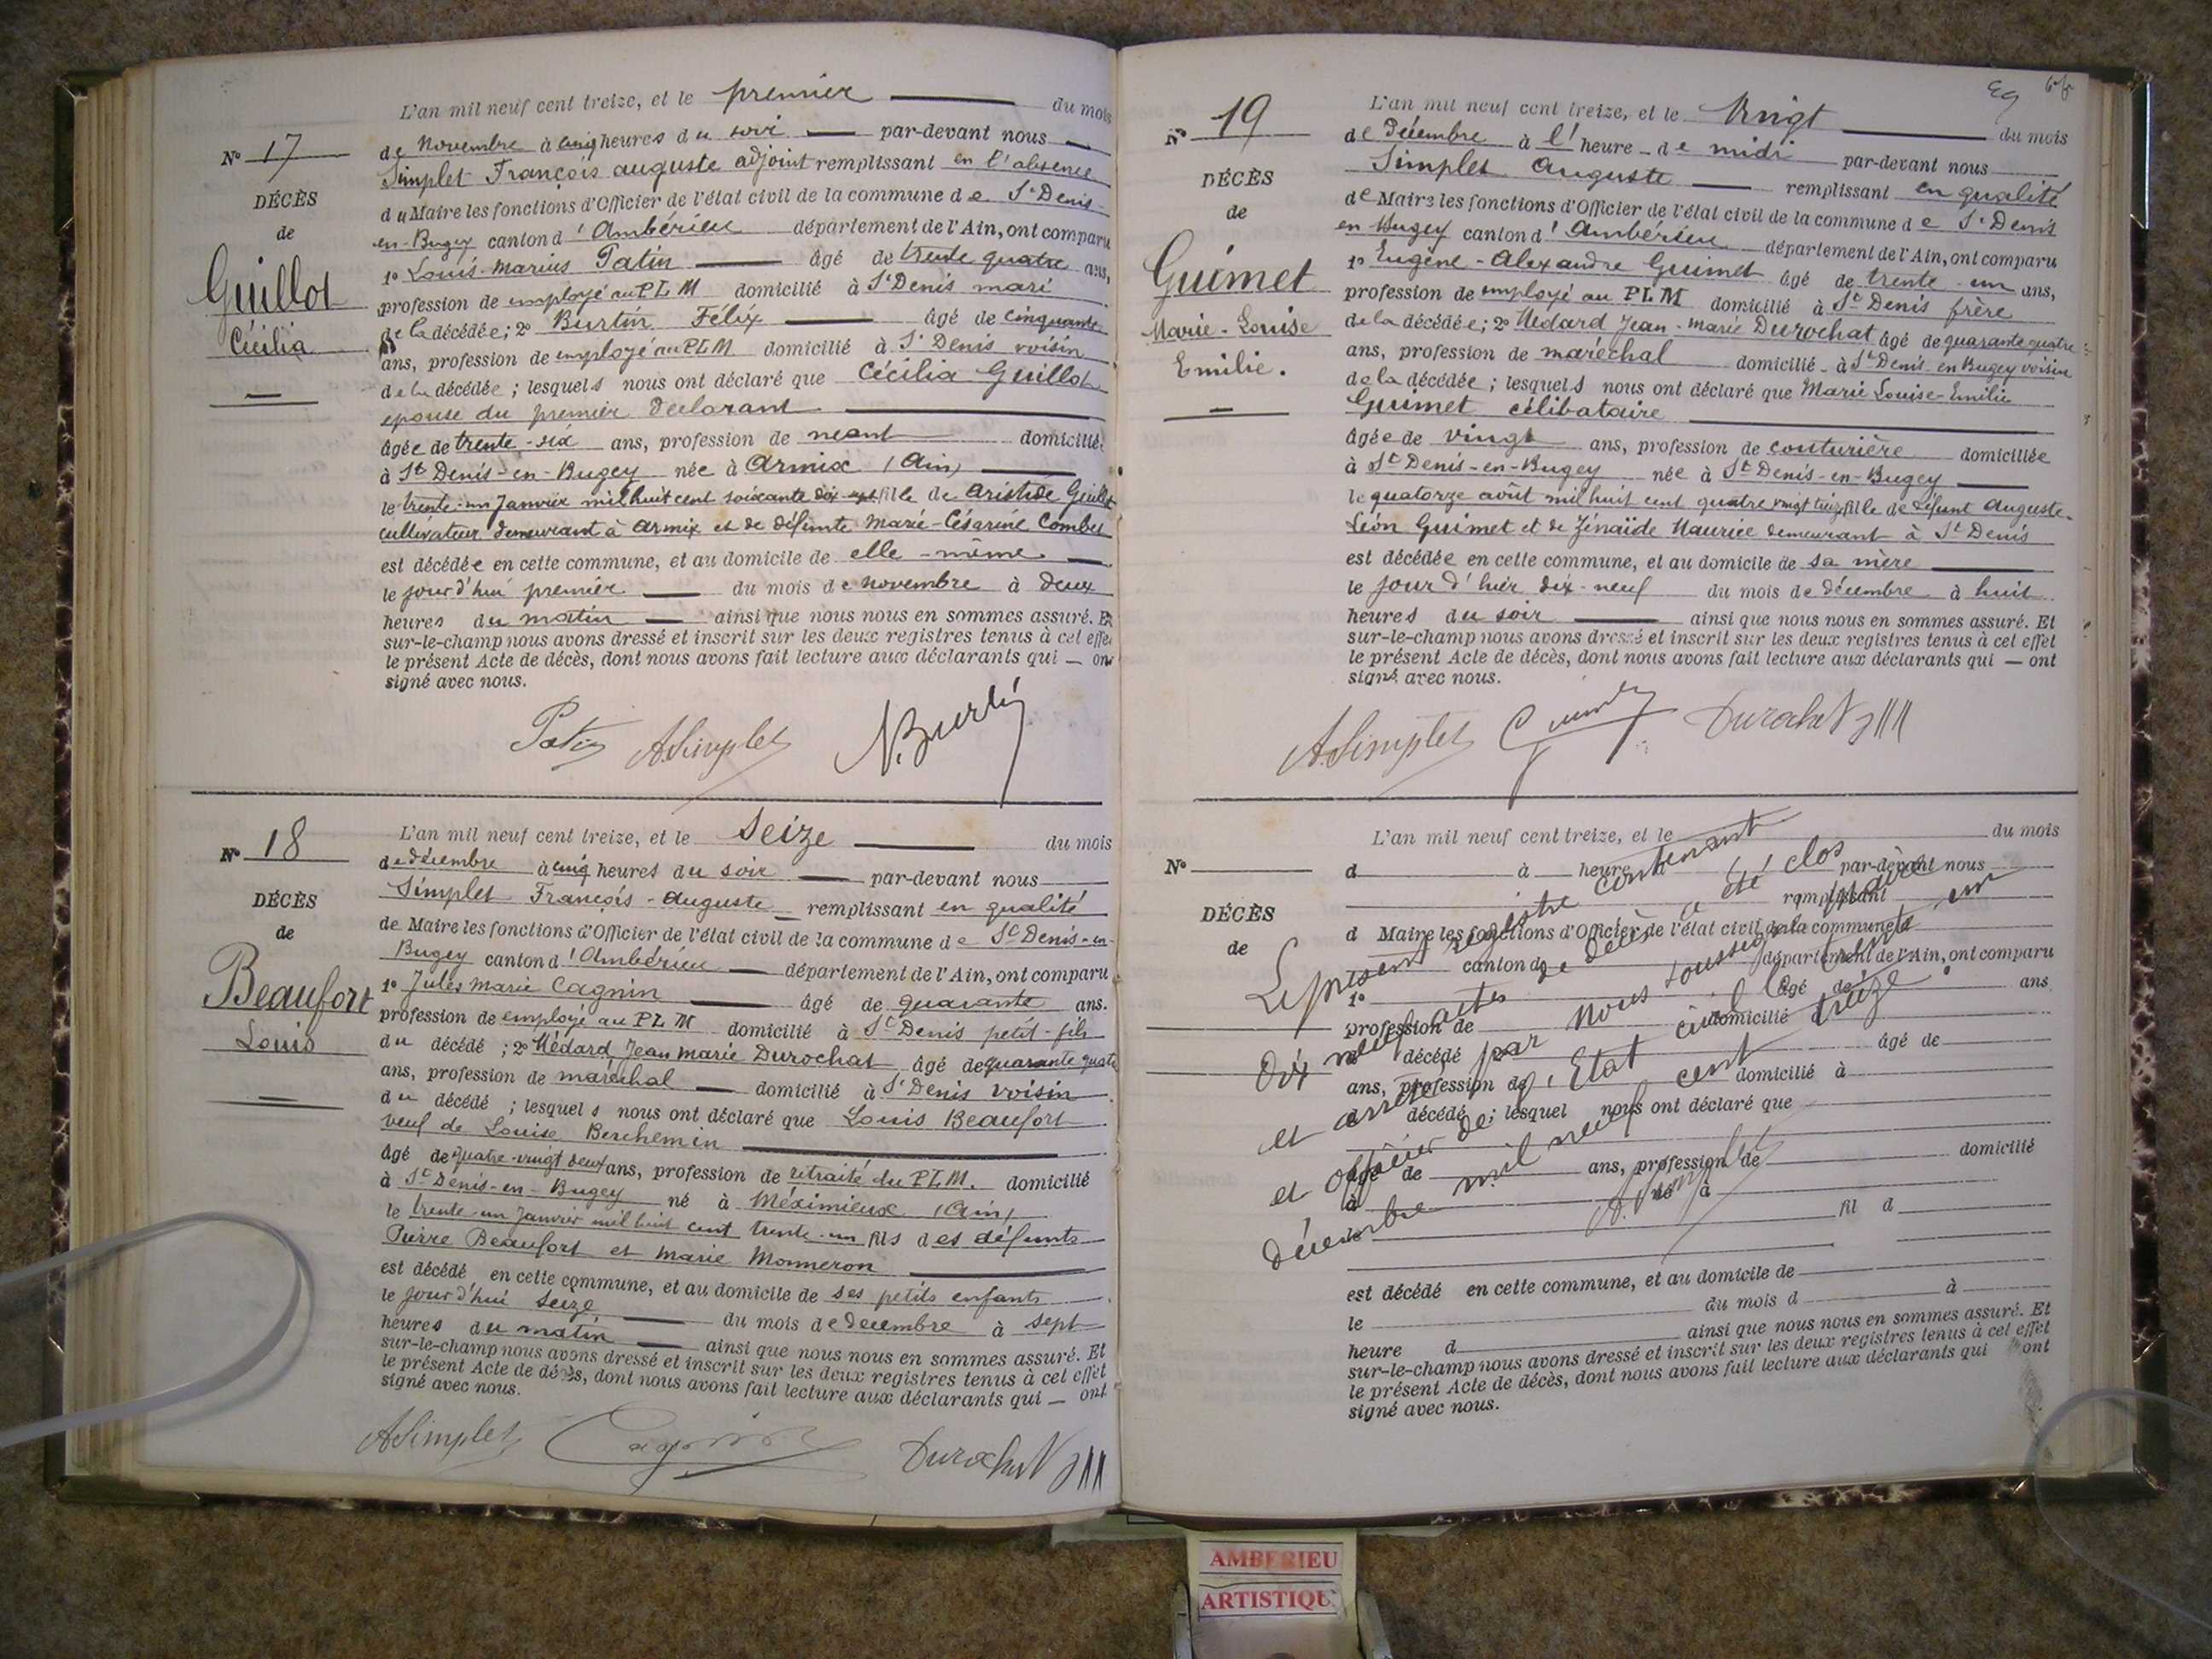 L'an mil neuf cent treize, et le premier du mois
No 17
de Novembre à cinq heures du soir par-devant nous
Simplet François auguste adjoint remplissant en l'absence
DÉCÈS
du Maire les fonctions d'Officier de l'état civil de la commune de St Denis-
de
en-Bugey canton d'Ambérieu département de l'Ain, ont comparu
Guillot
Cécilia
1o Louis-Marius Patin âgé de trente quatre ans,
profession de employé au PLM domicilié à St Denis mari
de la décédée; 2o Burtin Félix âgé de cinquante
ans, profession de employé au PLM domicilié à St Denis voisin
de la décédée; lesquels nous ont déclaré que Cécilia Guillot
epouse du premier declarant
âgée de trente-six ans, profession de neant domiciliée
à St Denis-en-Bugey née à Armix (Ain)
le trente-un Janvier mil huit cent soixante dix-sept fille de Aristide Guillot
cultivateur demeurant à Armix et de défunte Marie-Césarine Combet
est décédée en cette commune, et au domicile de elle-même
le jourd'hui premier du mois de novembre à deux
heures du matin ainsi que nous nous en sommes assuré. Et
sur-le-champ nous avons dressé et inscrit sur les deux registres tenus à cet effet
le présent Acte de décès, dont nous avons fait lecture aux déclarants qui — ont
signé avec nous.
Patin A Simplet N. Burtin
L'an mil neuf cent treize, et le Seize du mois
No 18
de décembre à cinq heures du soir par-devant nous
Simplet François-Auguste remplissant en qualité
DÉCÈS
de Maire les fonctions d'Officier de l'état civil de la commune de St Denis-en-
de
Bugey canton d'Ambérieu département de l'Ain, ont comparu
Beaufort
Louis
1o Jules Marie Cagnin âgé de quarante ans.
profession de employé au PLM domicilié à St Denis petit-fils
du décédé; 2o Médard Jean Marie Durochat âgé de quarante quatre
ans, profession de maréchal domicilié à St Denis voisin
du décédé; lesquels nous ont déclaré que Louis Beaufort
veuf de Louise Berchemin
âgé de quatre-vingt deux ans, profession de retraité du PLM. domicilié
à St Denis-en-Bugey né à Méximieux (Ain)
le trente-un Janvier mil huit cent trente-un fils des défunts
Pierre Beaufort et Marie Monneron
est décédé en cette commune, et au domicile de ses petits enfants
le jourd'hui seize du mois de decembre à sept
heures du matin ainsi que nous nous en sommes assuré. Et
sur-le-champ nous avons dressé et inscrit sur les deux registres tenus à cet effet
le présent Acte de décès, dont nous avons fait lecture aux déclarants qui — ont
signé avec nous.
A Simplet Cagnin Durochat
L'an mil neuf cent treize, et le Vingt du mois
No 19
de Décembre à l'heure de midi par-devant nous
Simplet Auguste remplissant en qualité
DÉCÈS
de Maire les fonctions d'Officier de l'état civil de la commune de St Denis
de
en Bugey canton d'Ambérieu département de l'Ain, ont comparu
Guimet
Marie-Louise
Emilie.
1o Eugène-Alexandre Guimet âgé de trente-un ans,
profession de employé au PLM domicilié à St Denis frère
de la décédée; 2o Médard Jean-Marie Durochat âgé de quarante quatre
ans, profession de maréchal domicilié à St Denis-en Bugey voisin
de la décédée; lesquels nous ont déclaré que Marie Louise-Emilie
Guimet célibataire
âgée de vingt ans, profession de couturière domiciliée
à St Denis-en-Bugey née à St Denis-en-Bugey
le quatorze août mil huit cent quatre vingt treize fille de défunt Auguste-
Léon Guimet et de Zénaïde Maurice demeurant à St Denis
est décédée en cette commune, et au domicile de sa mère
le jour d'hier dix-neuf du mois de décembre à huit
heures du soir ainsi que nous nous en sommes assuré. Et
sur-le-champ nous avons dressé et inscrit sur les deux registres tenus à cet effet
le présent Acte de décès, dont nous avons fait lecture aux déclarants qui — ont
signé avec nous.
A Simplet Guimet Durochat
L'an mil neuf cent treize, et le du mois
No
d à heure d par-devant nous
remplissant
DÉCÈS
d Maire les fonctions d'Officier de l'état civil de la commune d
de
canton d département de l'Ain, ont comparu
1o âgé de ans
profession de domicilié
décédé âgé de
ans, profession de domicilié à
décédé; lesquel nous ont déclaré que
âgé de ans, profession de domicilié
à né à
le fil d
est décédé en cette commune, et au domicile de
le du mois d à
heure d ainsi que nous nous en sommes assuré. Et
sur-le-champ nous avons dressé et inscrit sur les deux registres tenus à cet effet
le présent Acte de décès, dont nous avons fait lecture aux déclarants qui ont
signé avec nous.
Le présent registre contenant
Dix neuf actes de décès a été clos
et arrêté par nous soussigné Maire
et officier de l'Etat civil le trente un
Décembre mil neuf cent treize.
A. Simplet
AMBERIEU
ARTISTIQU